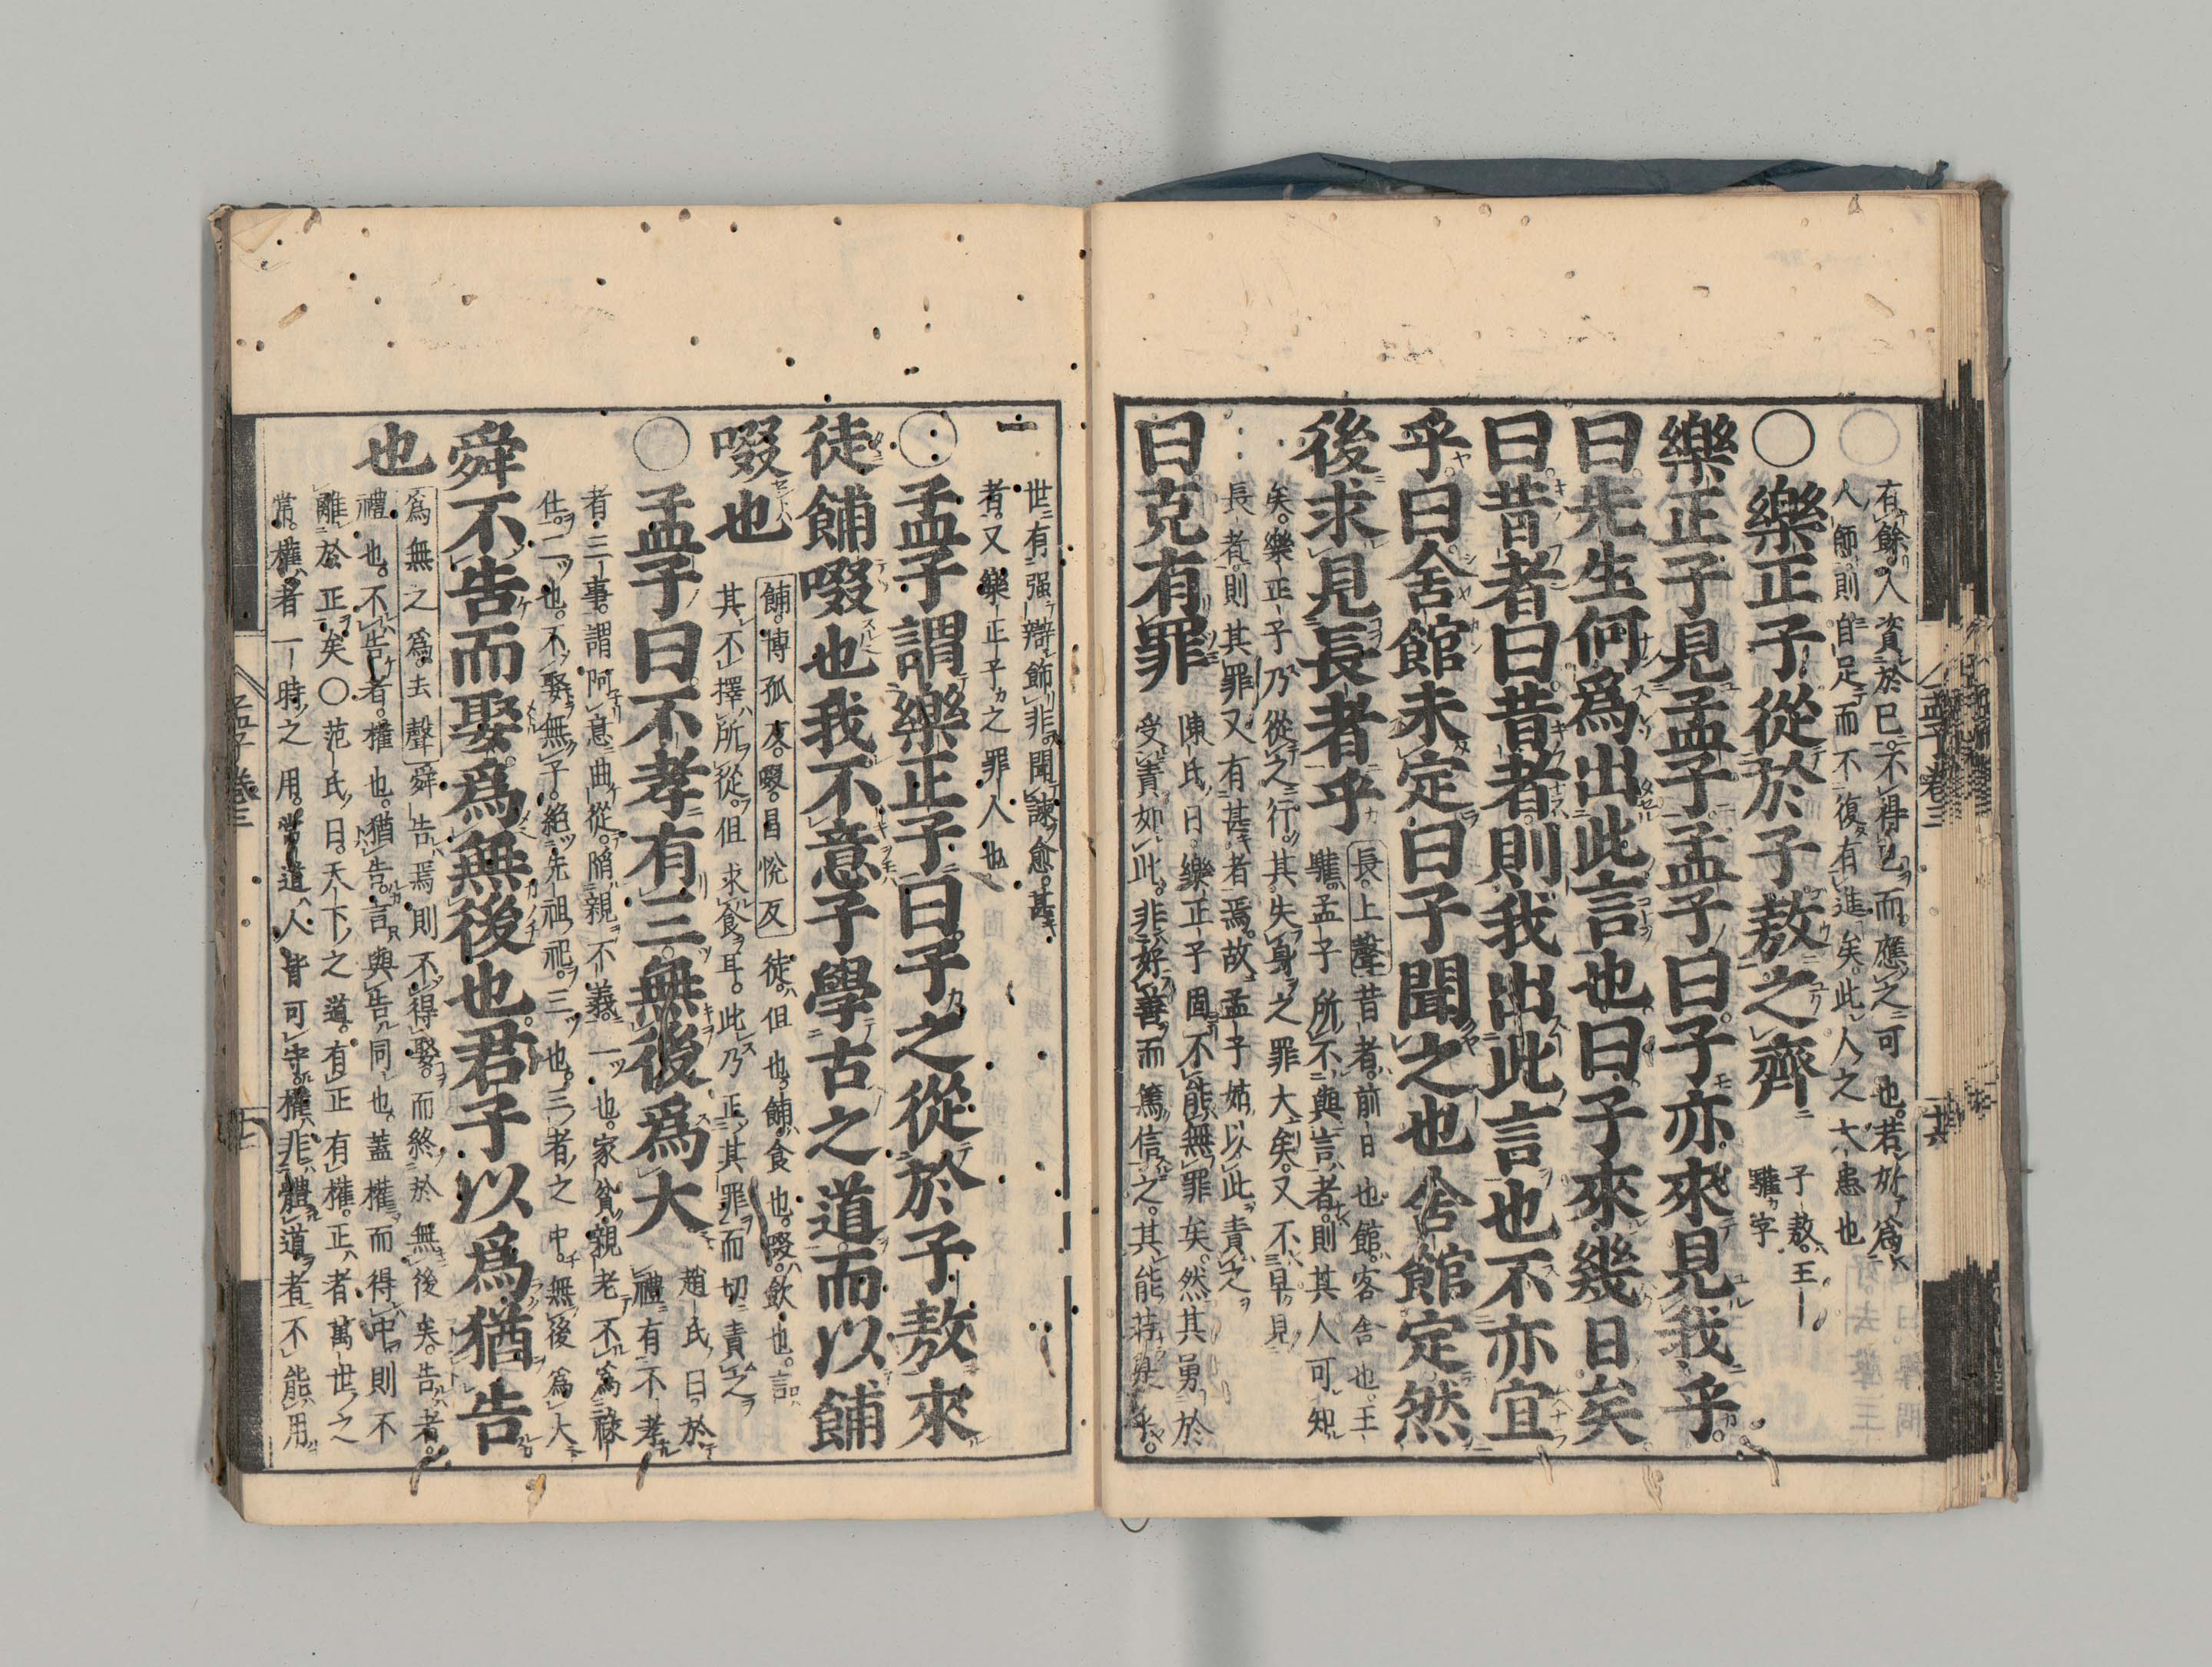 有餘。人資於己。不得已而應之可也。若好爲
人師。則自足而不復有進矣。此人之大患也
○樂正子從於子敖之齊
子敖。王
驩字
樂正子見孟子孟子曰子亦來見我乎
曰先生何爲出此言也曰子來幾日矣
曰昔者曰昔者則我出此言也不亦宜
乎曰舍館未定曰子聞之也舍館定然
後求見長者乎
長。上聲昔者。前日也館。客舍也。王
驩。孟子所不與言者。則其人可知
矣。樂正子乃從之行。其失身之罪大矣。又不早見
長者。則其罪又有甚者焉。故孟子姑以此責之
曰克有罪
陳氏曰。樂正子固不能無罪矣。然其勇於
受責如此。非好善而篤信之。其能若是乎。
世有强辯飾非。聞諫愈甚
者。又樂正子之罪人也
○孟子謂樂正子曰子之從於子敖來
徒餔啜也我不意子學古之道而以餔
啜也
餔。博孤反。啜。昌悅反 徒。但也。餔。食也。啜。飲也。言
其不擇所從。但求食耳。此乃正其罪而切責之
○孟子曰不孝有三無後爲大
趙氏曰。於
禮有不孝
者三事。謂阿意曲從。陷親不義。一也。家貧親老。不爲祿
仕。二也。不娶無子。絕先祖祀。三也。三者之中。無後爲大
舜不告而娶爲無後也君子以爲猶告
也
爲無之爲。去聲 舜告焉則不得娶。而終於無後矣。告者。
禮也。不告者。權也。猶告。言與告同也。蓋權而得中。則不
離於正矣○范氏曰。天下之道。有正有權。正者萬世之
常。權者一時之用。常道人皆可守。權非體道者不能用
孟子卷三
十六
孟子卷三